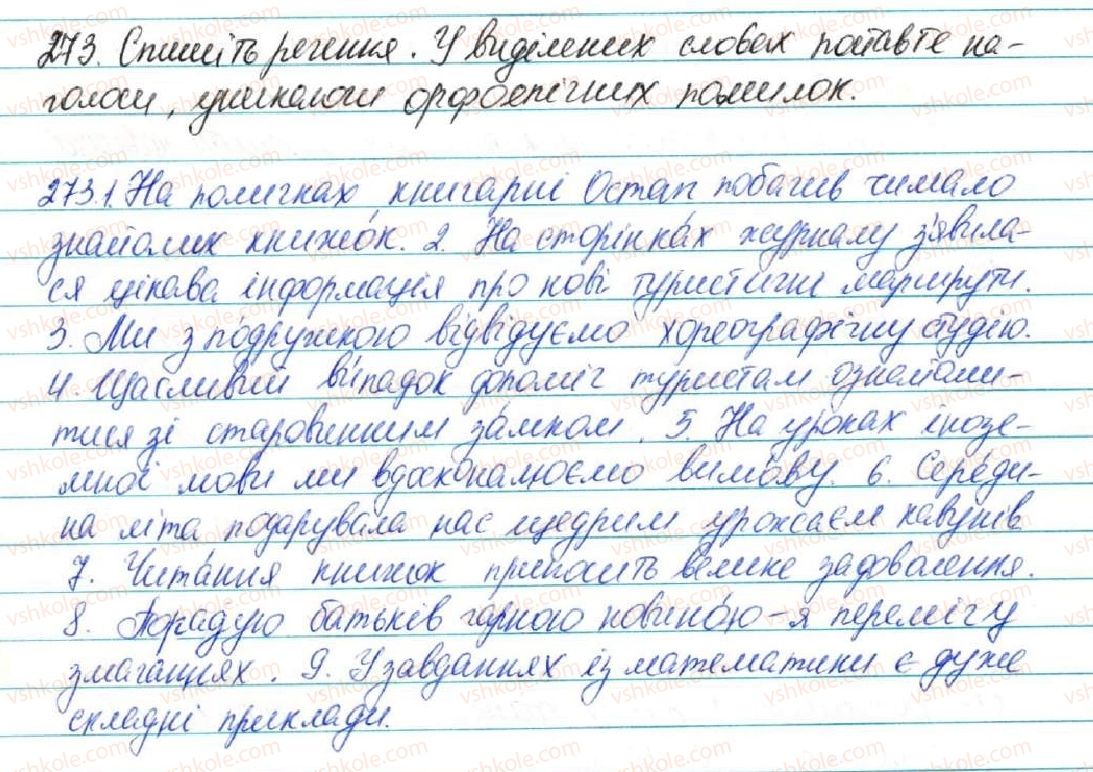 273. Спишіть речення. У виділених словах поставте на-
голоси, уникаючи орфоепічних помилок.
273.1. На поличках книгарні Остап побачив чимало
знайомих книжо́к. 2. На сторінка́х журналу з'явила-
ся цікава інформація про нові туристичні маршрути.
3. Ми з по́дружкою відвідуємо хореографічну студію.
4. Щасливий ви́падок допоміг туристам ознайоми-
тися зі старовинним за́мком. 5. На уроках інозе-
мної мови ми вдосконалюємо вимо́ву. 6. Сере́ди-
на літа подарувала нас щедрим урожаєм кавунів.
7. Чита́ння книжок приносить велике задоволення.
8. Пора́дую батьків гарною новино́ю - я переміг у
змаганнях. 9. У завданнях із математики є дуже
складні приклади.